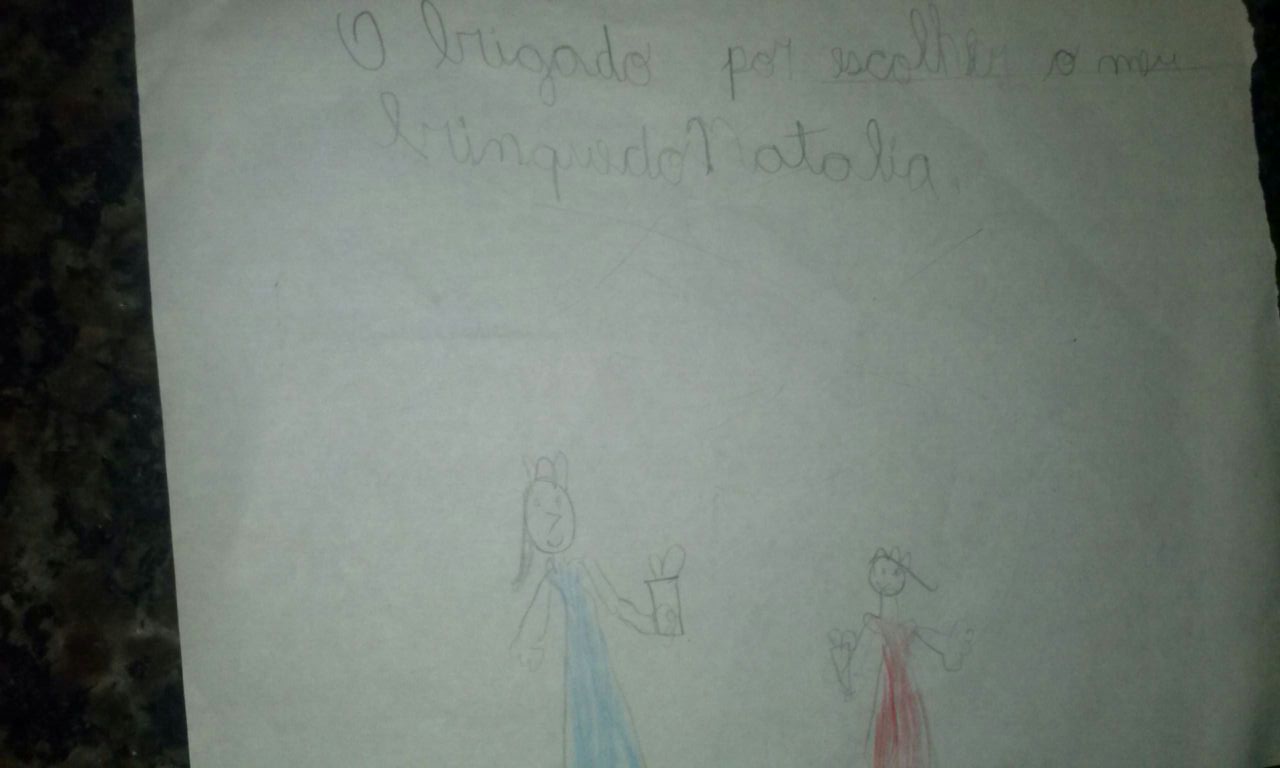 O brigado por escolher o meu
brinquedo Natalia.